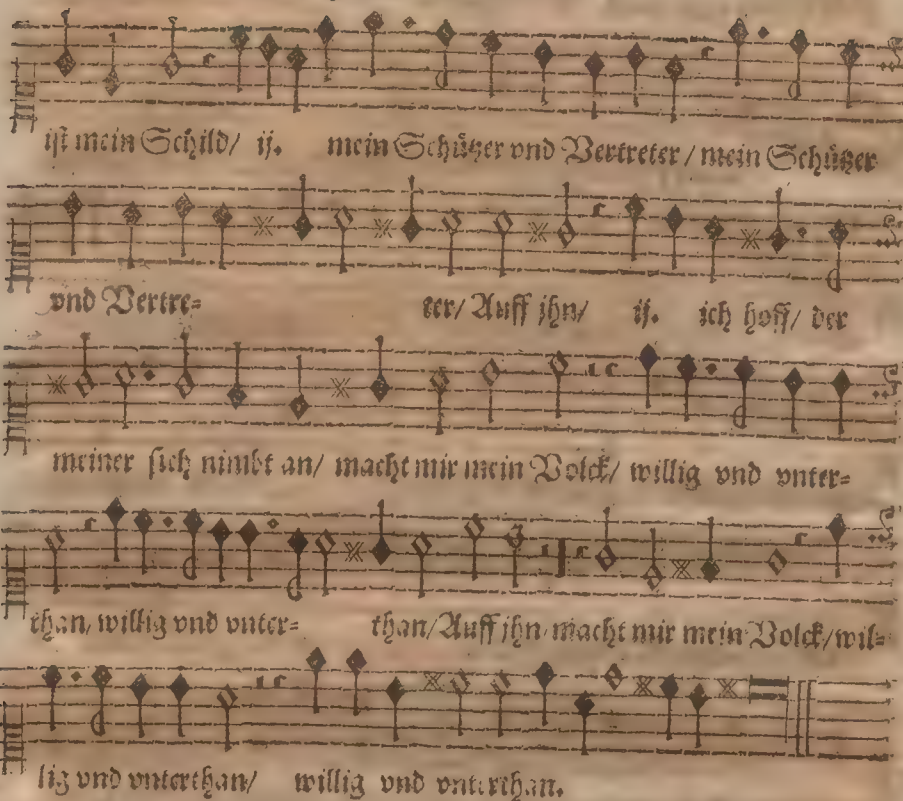 ist mein Schild/ ij. mein Schützer vnd Vertreter/ mein Schützer
vnd Vertre= ter/ Auff jhn/ ij. ich hoff/ der
meiner sich nimbt an/ macht mir mein Volck/ willig vnd vnter=
than/ willig vnd vnter= than/ Auff jhn/ macht mir mein Volck/ wil=
lig vnd vnterthan/ willig vnd vnterthan.